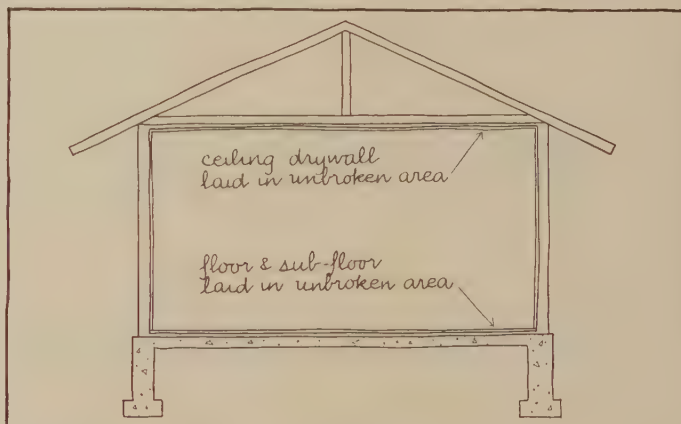 ceiling drywall
laid in unbroken area
floor & sub-floor
laid in unbroken area